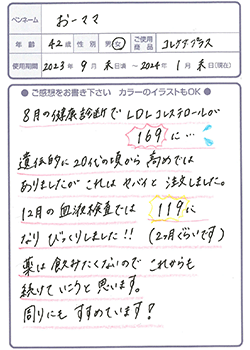 ペンネーム おーママ
年齢 42歳 性別 男・女 ご使用商品 コレケアプラス
使用期間 2023年9月末日頃 〜 2024年1月末日(現在)
●ご感想をお書き下さい カラーのイラストもOK●
8月の健康診断でLDLコレステロールが
169に…
遺伝的に20代の頃から高めでは
ありましたが これはヤバイと注文しました。
12月の血液検査では 119に
なり びっくりしました!! (2ヶ月ぐらいです)
薬は飲みたくないので これからも
続けていこうと思います。
周りにもすすめています!